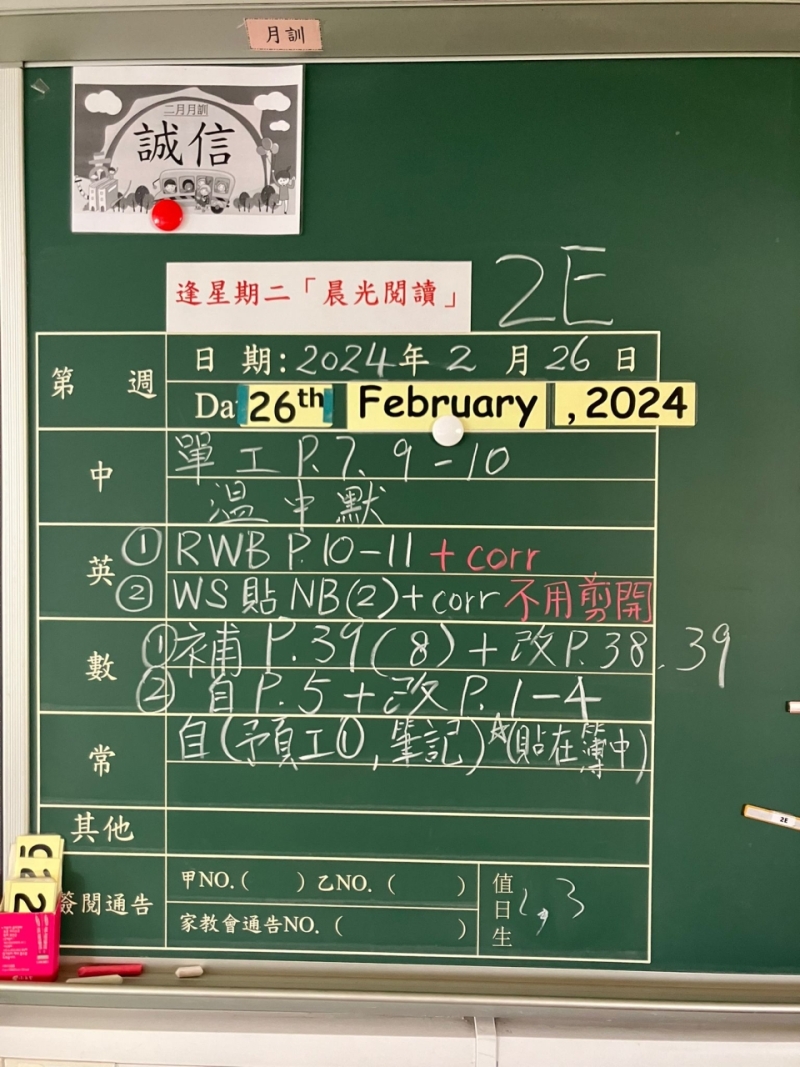 月訓
二月月訓
誠信
逢星期二「晨光閱讀」
2E
第 週
日 期:2024年2月26日
Da 26th February , 2024
中
單工P.7、9-10
溫中默
英
① RWB P.10-11 + corr
② WS貼NB(2)+corr 不用剪開
數
①補P.39(8)+改P.38、39
② 自P.5+改P.1-4
常
自(預工①,筆記)☆(貼在簿中)
其他
簽閱通告
甲NO.( )乙NO.( )
家教會通告NO.( )
值日生
2,3
2
2E